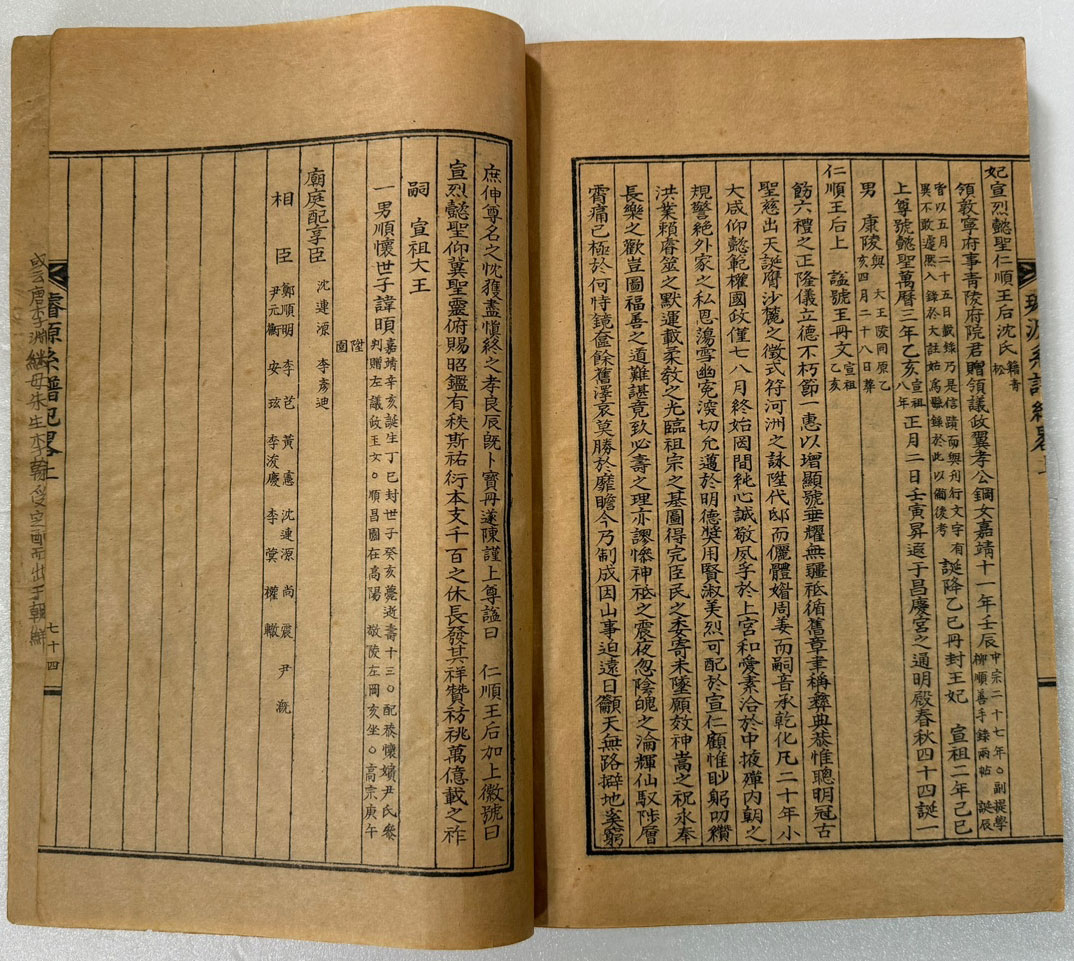 妃宣烈懿聖仁順王后沈氏籍青松
領敦寧府事青陵府院君贈領議政翼孝公鋼女嘉靖十一年壬辰中宗二十七年○副提學柳順善手錄兩帖誕辰
皆以五月二十五日載錄乃是信蹟而與刊行文字有異不敢遽然入錄於大註始爲懸錄於此以備後考誕降乙巳冊封王妃 宣祖二年己巳
上尊號懿聖萬曆三年乙亥宣祖八年正月二日壬寅昇遐于昌慶宮之通明殿春秋四十四誕一
男 康陵與 大王陵同原乙亥四月二十八日葬
仁順王后上 諡號玉冊文宣祖乙亥
飭六禮之正隆儀立德不朽節一惠以增顯號垂耀無疆祗循舊章聿稱彝典恭惟聰明冠古
聖慈出天誕膺沙麓之徵式符河洲之詠陞代邸而儷體媲周姜而嗣音承乾化凡二十年小
大咸仰懿範權國政僅七八月終始罔間純心誠敬夙孚於上宮和愛素洽於中掖殫內朝之
規警絶外家之私恩蕩雪幽寃深切允邁於明德奬用賢淑美烈可配於宣仁顧惟眇躬叨纘
洪業賴睿筮之默運載柔敎之光臨祖宗之基圖得完臣民之委寄未墜願效神嵩之祝永奉
長樂之歡豈圖福善之道難諶竟致必壽之理亦謬慘神祗之震夜忽陰魄之淪輝仙馭陟層
霄痛已極於何恃鏡奩餘舊澤哀莫勝於靡瞻今乃制成因山事迫遠日籲天無路擗地奚窮
庶伸尊名之忱獲盡愼終之孝良辰旣卜寶冊遂陳謹上尊諡曰 仁順王后加上徽號曰
宣烈懿聖仰冀聖靈俯賜昭鑑有秩斯祜衍本支千百之休長發其祥贊祊祧萬億載之祚
嗣 宣祖大王
一男順懷世子諱暊嘉靖辛亥誕生丁巳封世子癸亥薨逝壽十三○配恭懷嬪尹氏參判贈左議政玉女○順昌園在高陽 敬陵左岡亥坐○高宗庚午
陞園
廟庭配享臣 沈連源 李彥迪
相臣 鄭順朋 李芑 黃憲 沈連源 尙震 尹漑
尹元衡 安玹 李浚慶 李蓂 權轍
璿源系譜紀畧
七十四